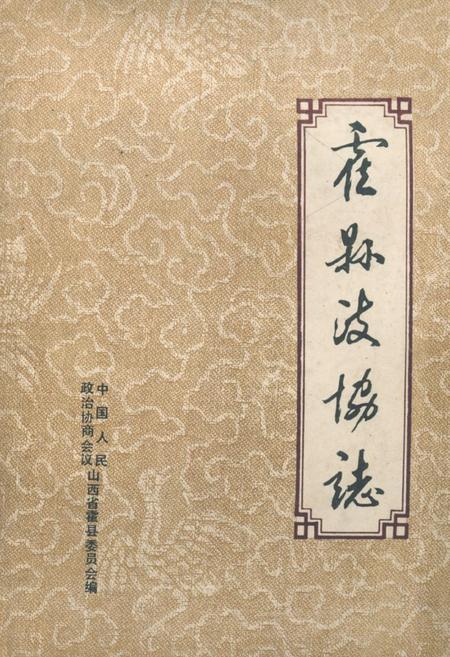 霍县政协誌
中国人民
政治协商会议
山西省霍县委员会编